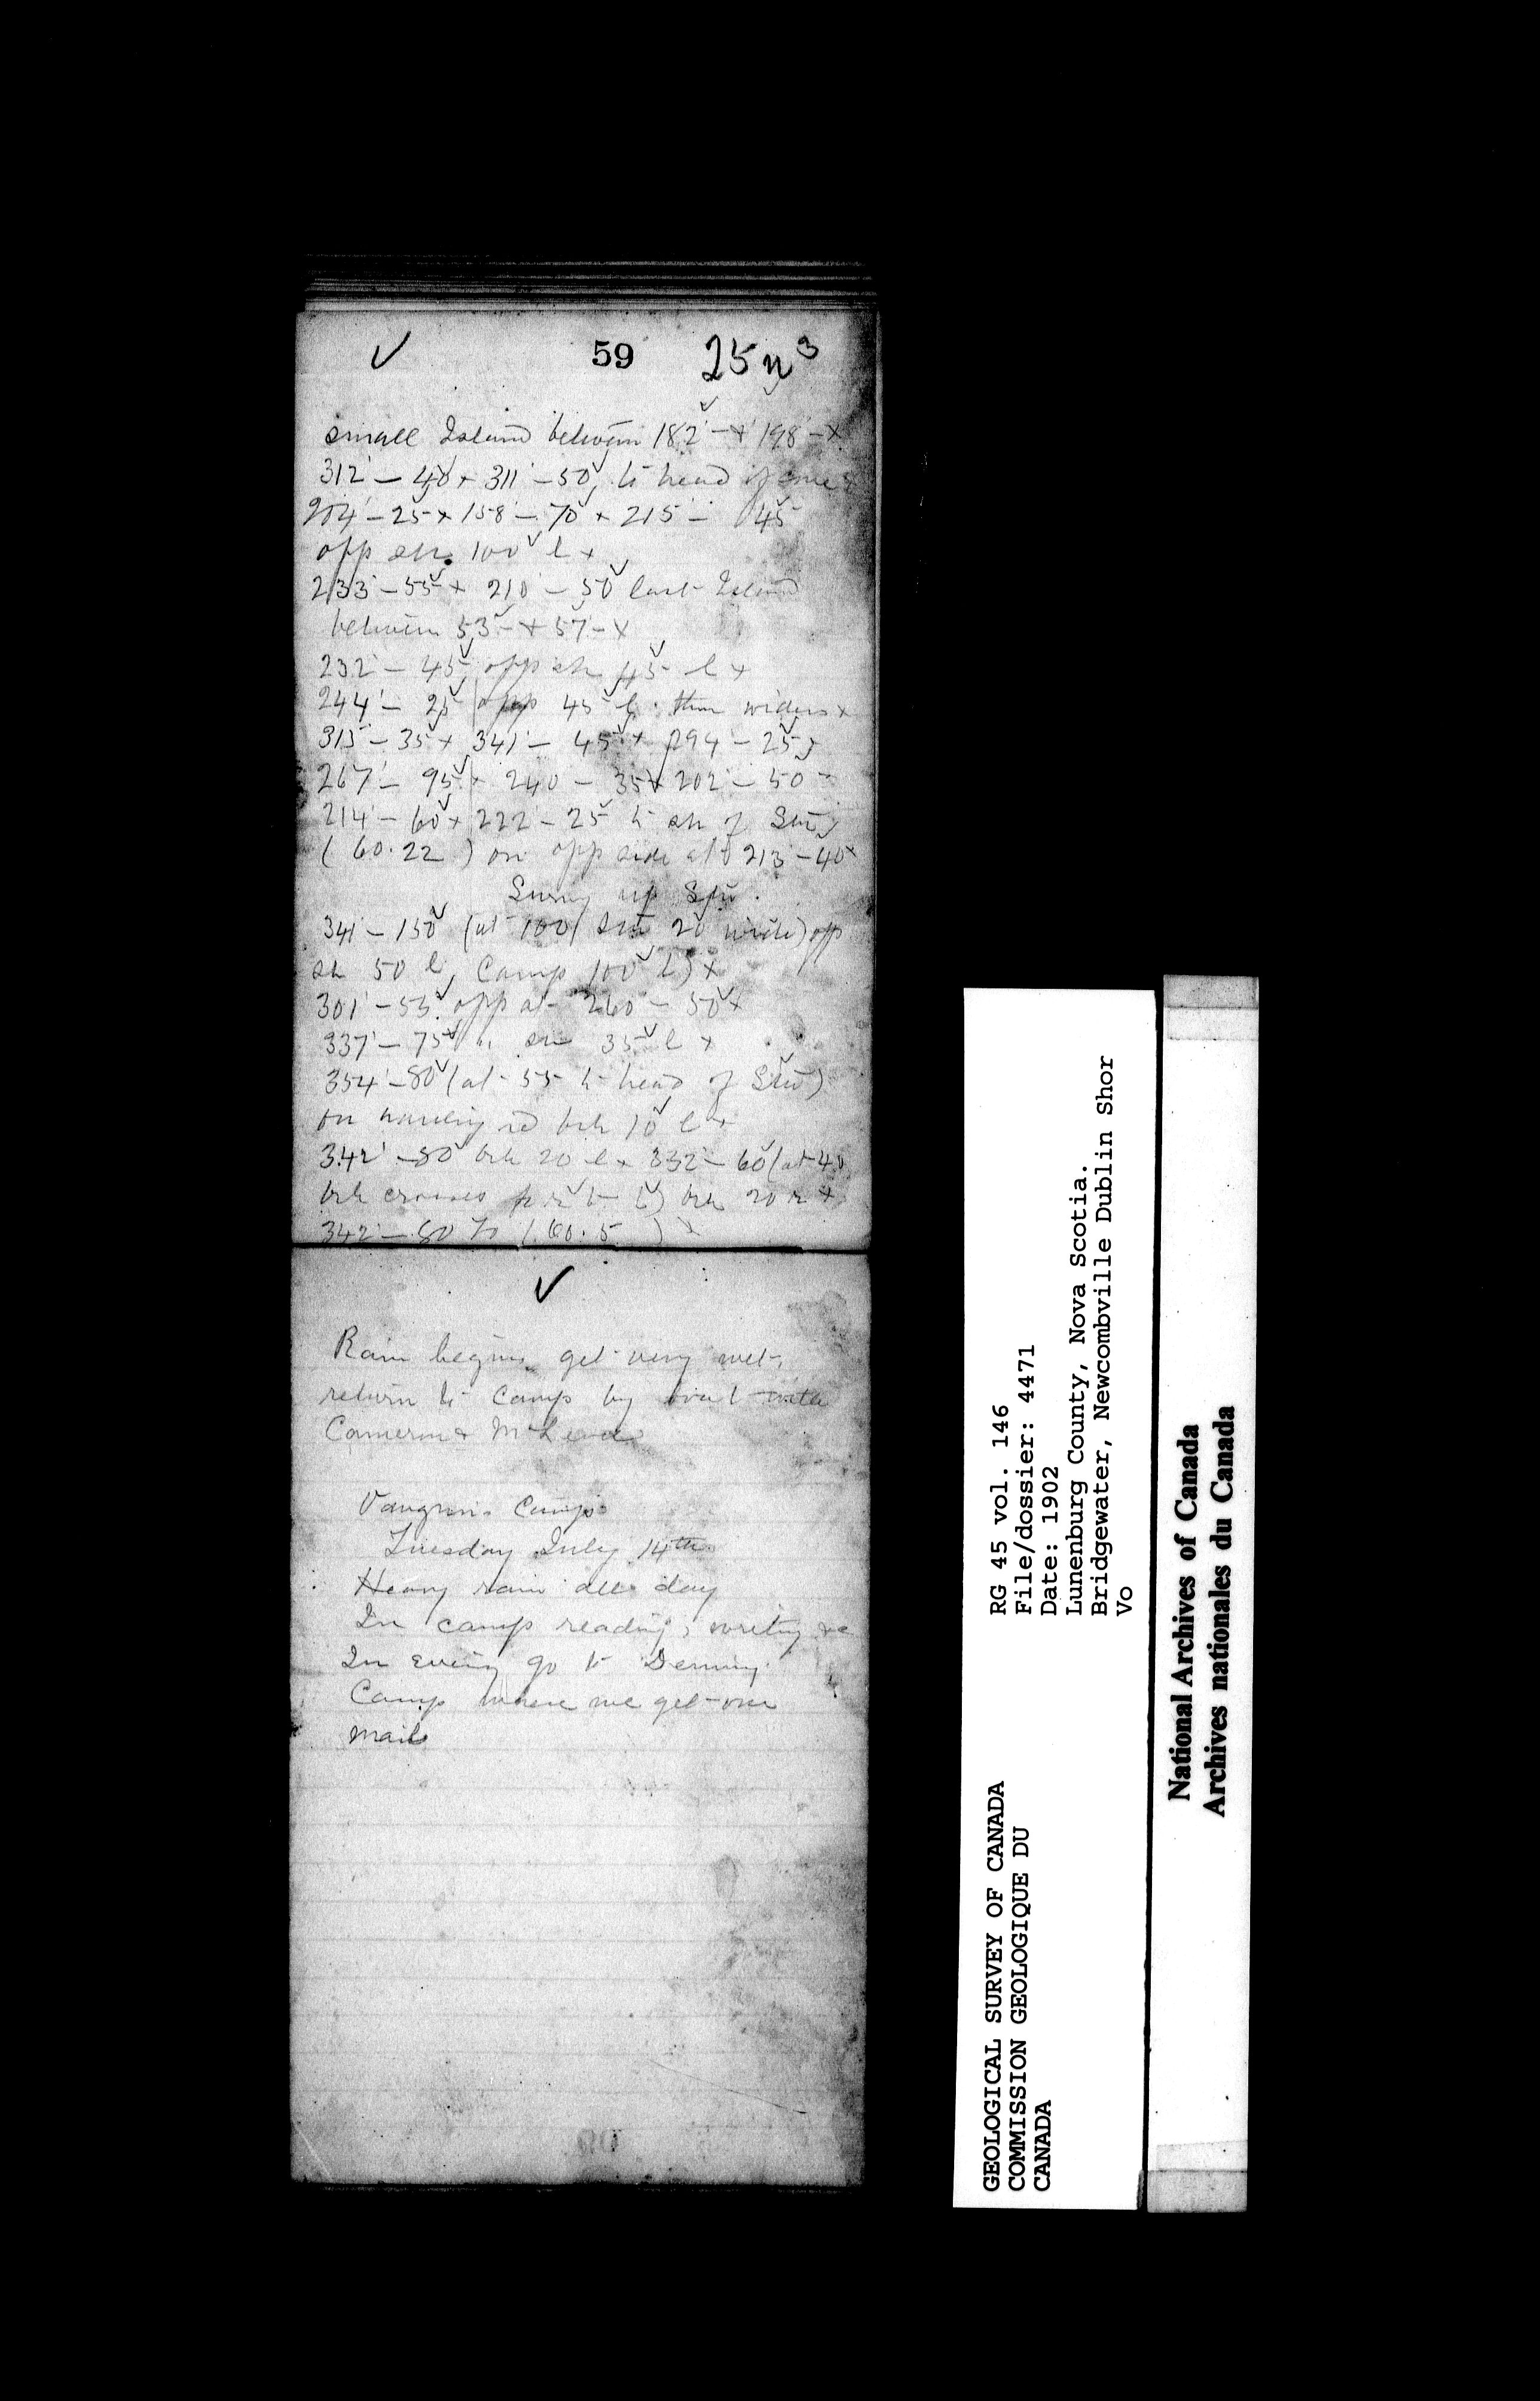 ✓ 59 25 n 3
small Island between 182° - + 198° - x
312° - 40 + 311° - 50, to head of cove +
204° - 25 + 158° - 70 + 215° - 45
opp sh 100 l +
233° - 55 + 210° - 50 last Island
between 53 - + 57 - x
232° - 45 opp sh 45 l +
244° - 25 opp 45 l then widens +
315° - 35 + 341° - 45 + 294 - 25
267° - 95 + 240 - 35 + 202° - 50
214° - 60 + 222 - 25 to sh of
(60.22) on opp side at 213° - 40 +
Survey up
341° - 150 (at 100 20 wide) opp
sh 50 l, Camp 100 l) +
301° - 55 opp at 260 - 50 +
337° - 75 " sh 35 l +
354° - 80 (at 55 to head of
brk 10 l +
342° - 80 brk 20 l + 332° - 60 (at 40
brk crosses fr r to l) brk 20 r +
342° - 80 to (60.5 )
✓
Rain begins get very wet,
return to camp by boat with
Cameron & McLeod
Camp
Tuesday July 14th
Heavy rain all day
In camp reading, writing &c
In evening go to
Camp where we get our
mail
RG 45 vol. 146
File/dossier: 4471
Date: 1902
Lunenburg County, Nova Scotia.
Bridgewater, Newcombville Dublin Shor
Vo
GEOLOGICAL SURVEY OF CANADA
COMMISSION GEOLOGIQUE DU
CANADA
National Archives of Canada
Archives nationales du Canada